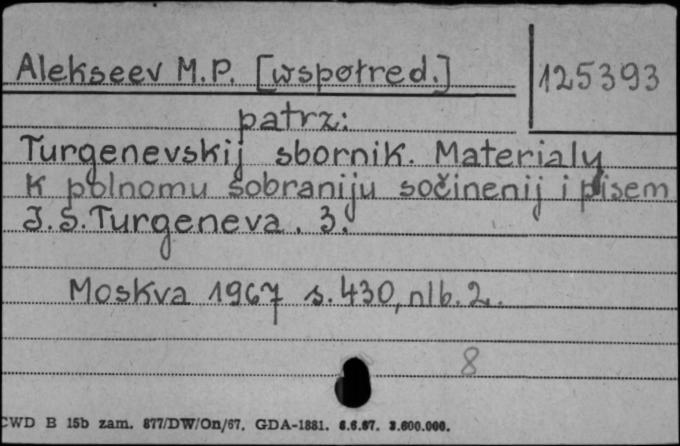 Alekseev M.P. [współred.]
125393
patrz:
Turgenevskij sbornik. Materialy
k polnomu sobraniju sočinenij i pisem
I.S.Turgeneva. 3.
Moskva 1967 s. 430, nlb. 2.
8
CWD B 15b zam. 877/DW/On/67. GDA-1881. 6.6.67. 3.600.000.